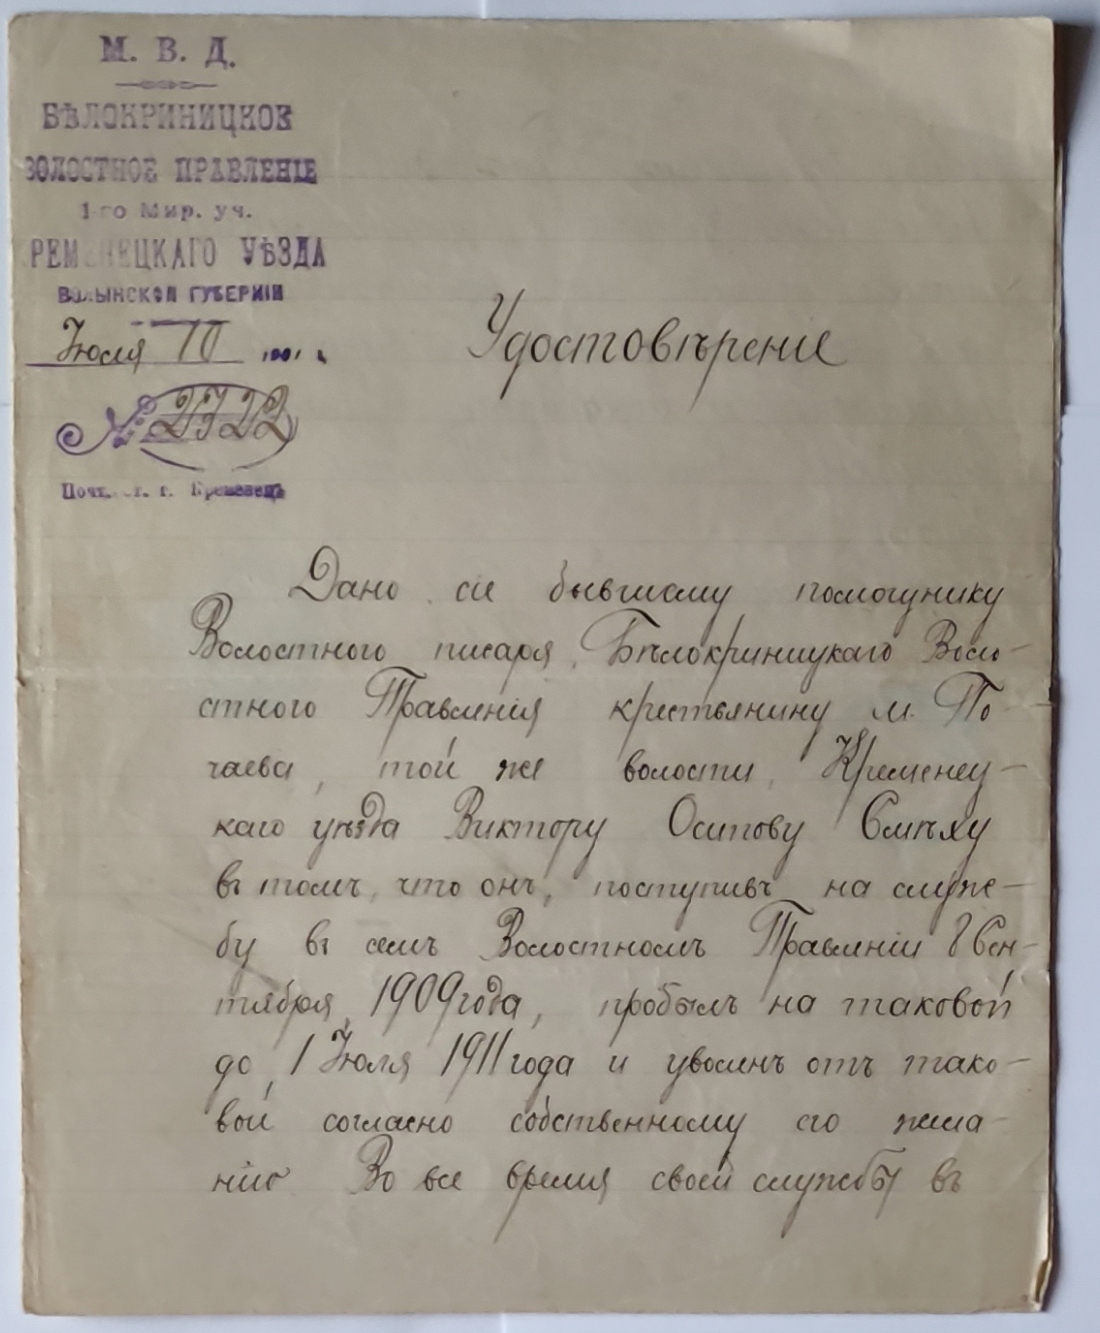 М. В. Д.
БѢЛОКРИНИЦКОЕ
ВОЛОСТНОЕ ПРАВЛЕНІЕ
1-го Мир. уч.
КРЕМЕНЕЦКАГО УѢЗДА
ВОЛЫНСКОЙ ГУБЕРНІИ
Іюля 10 1911 г.
№ 2722
Почт. ст. г. Кременецъ
Удостовѣреніе
Дано сіе бывшему помощнику
Волостного писаря, Бѣлокриницкаго Воло-
стного Правленія крестьянину м. По
чаева, той же волости, Кременец-
каго уѣзда Виктору Осипову Смѣху
въ томъ, что онъ, поступивъ на служ-
бу въ семъ Волостномъ Правленіи 8 Сен-
тября 1909 года, пробылъ на таковой
до 1 Іюля 1911 года и уволенъ отъ тако-
вой согласно собственному его жела-
нію Во все время своей службы въ